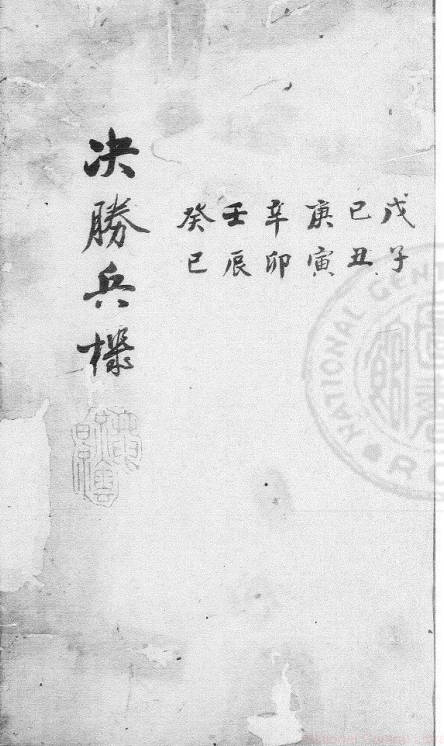 戊子
己丑
庚寅
辛卯
壬辰
癸巳
决勝兵機
NATIONAL CENT